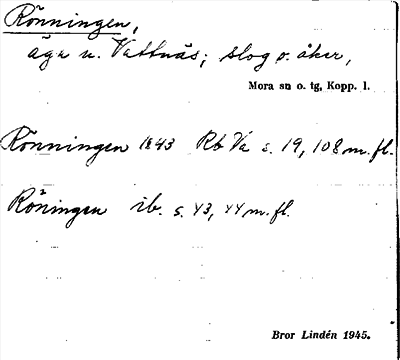 Rönningen,
äga n. Vattnäs; slog o. åker,
Mora sn o. tg, Kopp. l.
Rönningen 1843 Rb Va s. 19, 108 m. fl.
Röningen ib. s. 43, 44 m. fl.
Bror Lindén 1945.